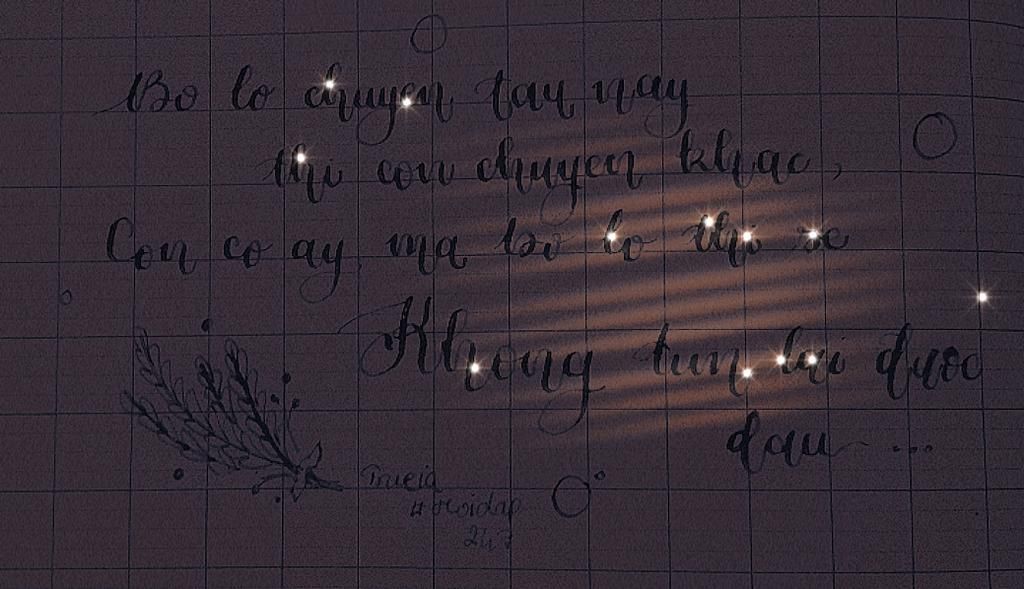 Bo lo chuyen tau nay
thi con chuyen khac,
Con co ay, ma bo lo thi se
Khong tim lai duoc
dau ...
Trucia
#hoidap
247